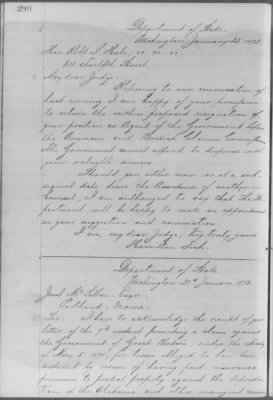 290
Department of State.
Washington January 23. 1873.
Hon. Robt S. Hale,
Street
My dear Judge:
Referring to our conversation of
last evening I am happy of your promise
to return the written proposed resignation of
your position as Agent of the Government before
the American and British Claims Commission.
The Government cannot afford to dispense with
your valuable services.
Should you either now or at a sub-
sequent date desire the assistance of another
Counsel, I am authorized to say that the De-
partment will be happy to make an appointment
on your suggestion and nomination.
I am, my dear Judge, Very truly yours
Hamilton Fish.
Department of State.
Washington 1873.
Esqre
Portland, Maine.
Sir. I have to acknowledge the receipt of your
letter of the 7th instant presenting a claim against
the Government of Great Britain under the Treaty
of May 8 1871, for losses alleged to have been
by reason of having paid insurance
premiums to protect property against the depreda-
tions of the Alabama and other